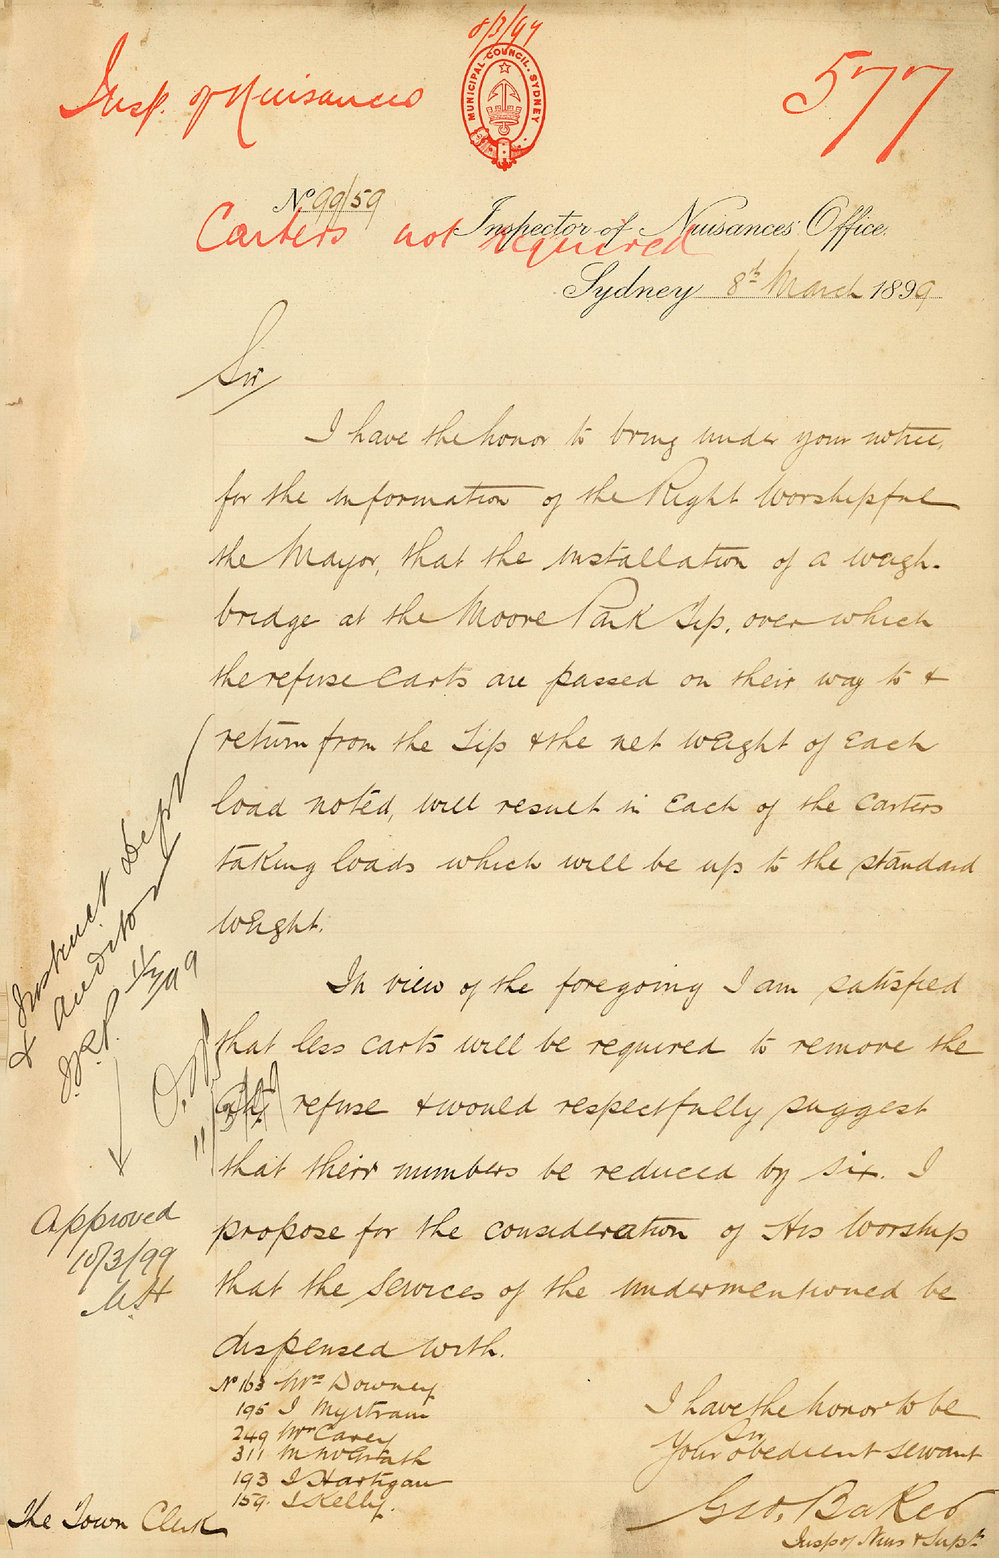 8/3/99
Insp. of Nuisances
MUNICIPAL COUNCIL. SYDNEY
577
No. 99/59
Carters not required
Inspector of Nuisances' Office.
Sydney 8th March 1899
Sir
I have the honor to bring under your notice,
for the information of the Right Worshipful
the Mayor, that the installation of a weigh-
bridge at the Moore Park Tip, over which
the refuse carts are passed on their way to &
return from the Tip & the net weight of each
load noted, will result in each of the carters
taking loads which will be up to the standard
weight.
In view of the foregoing I am satisfied
that less carts will be required to remove the
City refuse & would respectfully suggest
that their numbers be reduced by six. I
propose for the consideration of His Worship
that the services of the undermentioned be
dispensed with.
No 163 Mrs Downey
195 J
249 Wm Carey
311 M McGrath
193 J Hartigan
159. J Kelly.
I have the honor to be
Sir
Your obedient servant
Geo. Baker
Insp of Nuis & Supt
The Town Clerk
Instruct Dept
& Auditor
11/3/99
Approved
10/3/99
M.H